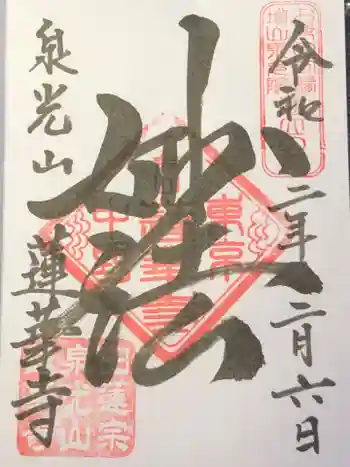 令和二年二月六日
妙法
泉光山
蓮華寺
東京
中野
日蓮宗
泉光山